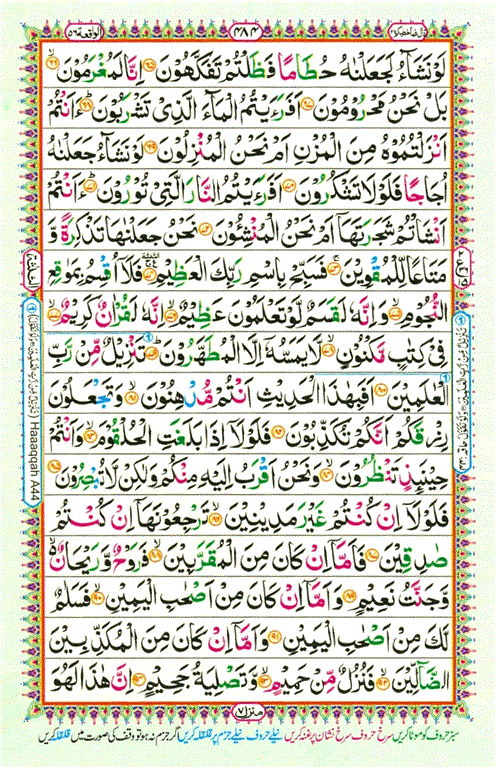 الواقعة ٥٦
٤٨٤
قال فما خطبكم ٢٧
لَوْ نَشَآءُ لَجَعَلْنٰهُ حُطَامًا فَظَلْتُمْ تَفَكَّهُوْنَ ﴿٦٥﴾ اِنَّا لَمُغْرَمُوْنَ ﴿٦٦﴾
بَلْ نَحْنُ مَحْرُوْمُوْنَ ﴿٦٧﴾ اَفَرَءَيْتُمُ الْمَآءَ الَّذِيْ تَشْرَبُوْنَ ﴿٦٨﴾ ءَاَنْتُمْ
اَنْزَلْتُمُوْهُ مِنَ الْمُزْنِ اَمْ نَحْنُ الْمُنْزِلُوْنَ ﴿٦٩﴾ لَوْ نَشَآءُ جَعَلْنٰهُ
اُجَاجًا فَلَوْلَا تَشْكُرُوْنَ ﴿٧٠﴾ اَفَرَءَيْتُمُ النَّارَ الَّتِيْ تُوْرُوْنَ ﴿٧١﴾ ءَاَنْتُمْ
اَنْشَاْتُمْ شَجَرَتَهَآ اَمْ نَحْنُ الْمُنْشِـُٔوْنَ ﴿٧٢﴾ نَحْنُ جَعَلْنٰهَا تَذْكِرَةً وَّ
مَتَاعًا لِّلْمُقْوِيْنَ ﴿٧٣﴾ فَسَبِّحْ بِاسْمِ رَبِّكَ الْعَظِيْمِ ﴿٧٤﴾ فَلَآ اُقْسِمُ بِمَوٰقِعِ
النُّجُوْمِ ﴿٧٥﴾ وَاِنَّهٗ لَقَسَمٌ لَّوْ تَعْلَمُوْنَ عَظِيْمٌ ﴿٧٦﴾ اِنَّهٗ لَقُرْاٰنٌ كَرِيْمٌ ﴿٧٧﴾
فِيْ كِتٰبٍ مَّكْنُوْنٍ ﴿٧٨﴾ لَّا يَمَسُّهٗٓ اِلَّا الْمُطَهَّرُوْنَ ﴿٧٩﴾ تَنْزِيْلٌ مِّنْ رَّبِّ
الْعٰلَمِيْنَ ﴿٨٠﴾ اَفَبِهٰذَا الْحَدِيْثِ اَنْتُمْ مُّدْهِنُوْنَ ﴿٨١﴾ وَتَجْعَلُوْنَ
رِزْقَكُمْ اَنَّكُمْ تُكَذِّبُوْنَ ﴿٨٢﴾ فَلَوْلَآ اِذَا بَلَغَتِ الْحُلْقُوْمَ ﴿٨٣﴾ وَاَنْتُمْ
حِيْنَىِٕذٍ تَنْظُرُوْنَ ﴿٨٤﴾ وَنَحْنُ اَقْرَبُ اِلَيْهِ مِنْكُمْ وَلٰكِنْ لَّا تُبْصِرُوْنَ ﴿٨٥﴾
فَلَوْلَآ اِنْ كُنْتُمْ غَيْرَ مَدِيْنِيْنَ ﴿٨٦﴾ تَرْجِعُوْنَهَآ اِنْ كُنْتُمْ
صٰدِقِيْنَ ﴿٨٧﴾ فَاَمَّآ اِنْ كَانَ مِنَ الْمُقَرَّبِيْنَ ﴿٨٨﴾ فَرَوْحٌ وَّرَيْحَانٌ ۙ۬
وَّجَنَّتُ نَعِيْمٍ ﴿٨٩﴾ وَاَمَّآ اِنْ كَانَ مِنْ اَصْحٰبِ الْيَمِيْنِ ﴿٩٠﴾ فَسَلٰمٌ
لَّكَ مِنْ اَصْحٰبِ الْيَمِيْنِ ﴿٩١﴾ وَاَمَّآ اِنْ كَانَ مِنَ الْمُكَذِّبِيْنَ
الضَّآلِّيْنَ ﴿٩٢﴾ فَنُزُلٌ مِّنْ حَمِيْمٍ ﴿٩٣﴾ وَّتَصْلِيَةُ جَحِيْمٍ ﴿٩٤﴾ اِنَّ هٰذَا لَهُوَ
منزل ٧
سبز حروف کو موٹا کریں سرخ حروف سرخ نشان پر غنہ کریں نیلے حروف نیلے جزم پر قلقلہ کریں اگر جزم نہ ہو تو وقف کی صورت میں قلقلہ کریں
Haaaqqah A44